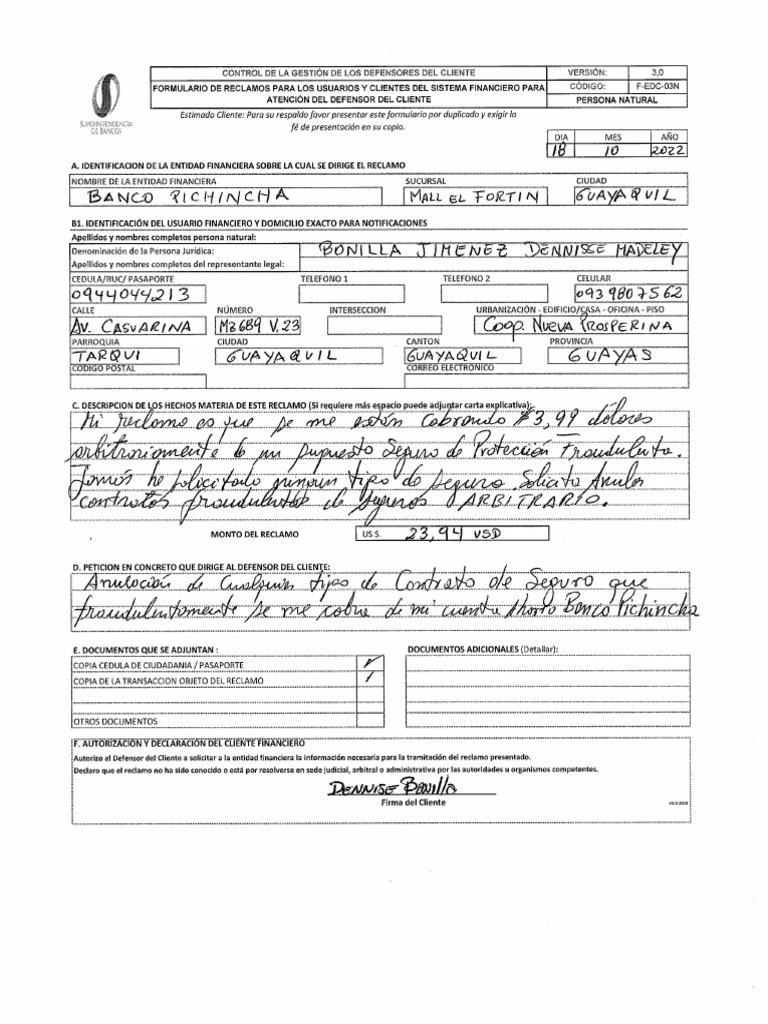 SUPERINTENDENCIA
DE BANCOS
CONTROL DE LA GESTIÓN DE LOS DEFENSORES DEL CLIENTE VERSIÓN: 3,0
FORMULARIO DE RECLAMOS PARA LOS USUARIOS Y CLIENTES DEL SISTEMA FINANCIERO PARA CÓDIGO: F-EDC-03N
ATENCIÓN DEL DEFENSOR DEL CLIENTE PERSONA NATURAL
Estimado Cliente: Para su respaldo favor presentar este formulario por duplicado y exigir la
fé de presentación en su copia.
DIA MES AÑO
18 10 2022
A. IDENTIFICACION DE LA ENTIDAD FINANCIERA SOBRE LA CUAL SE DIRIGE EL RECLAMO
NOMBRE DE LA ENTIDAD FINANCIERA SUCURSAL CIUDAD
BANCO PICHINCHA MALL EL FORTIN GUAYAQUIL
B1. IDENTIFICACIÓN DEL USUARIO FINANCIERO Y DOMICILIO EXACTO PARA NOTIFICACIONES
Apellidos y nombres completos persona natural:
Denominación de la Persona Jurídica: BONILLA JIMENEZ DENNISSE MADELEY
Apellidos y nombres completos del representante legal:
CEDULA/RUC/ PASAPORTE TELEFONO 1 TELEFONO 2 CELULAR
0944044213 0939807562
CALLE NÚMERO INTERSECCION URBANIZACIÓN - EDIFICIO/CASA - OFICINA - PISO
AV. CASUARINA MZ689 V.23 COOP. NUEVA PROSPERINA
PARROQUIA CIUDAD CANTON PROVINCIA
TARQUI GUAYAQUIL GUAYAQUIL GUAYAS
CODIGO POSTAL CORREO ELECTRONICO
C. DESCRIPCION DE LOS HECHOS MATERIA DE ESTE RECLAMO (Si requiere más espacio puede adjuntar carta explicativa):
Mi reclamo es que se me están cobrando $3,99 dólares
arbitrariamente de un supuesto Seguro de Protección Fraudulenta.
Jamás he solicitado ningún tipo de seguro. Solicito Anular
contratos fraudulentos de seguros ARBITRARIO.
MONTO DEL RECLAMO US $. 23,94 USD
D. PETICION EN CONCRETO QUE DIRIGE AL DEFENSOR DEL CLIENTE:
Anulación de Cualquier tipo de Contrato de Seguro que
fraudulentamente se me cobre de mi cuenta Ahorro Banco Pichincha
E. DOCUMENTOS QUE SE ADJUNTAN : DOCUMENTOS ADICIONALES (Detallar):
COPIA CEDULA DE CIUDADANIA / PASAPORTE ✓
COPIA DE LA TRANSACCION OBJETO DEL RECLAMO /
OTROS DOCUMENTOS
F. AUTORIZACIÓN Y DECLARACIÓN DEL CLIENTE FINANCIERO
Autorizo al Defensor del Cliente a solicitar a la entidad financiera la información necesaria para la tramitación del reclamo presentado.
Declaro que el reclamo no ha sido conocido o está por resolverse en sede judicial, arbitral o administrativa por las autoridades u organismos competentes.
DENNISE BONILLA
Firma del Cliente